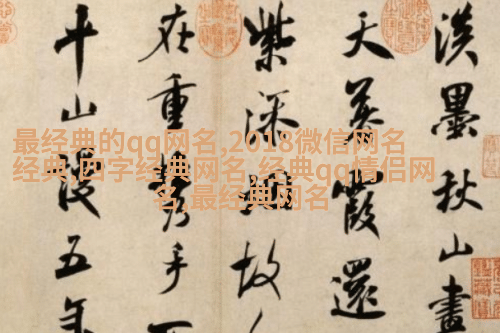 最经典的qq网名,2018微信网名
经典,四字经典网名,经典qq情侣网
名,最经典网名
淡墨秋山畫
天暮霞還
紫添煙故
在重攜手不
平山謾五年